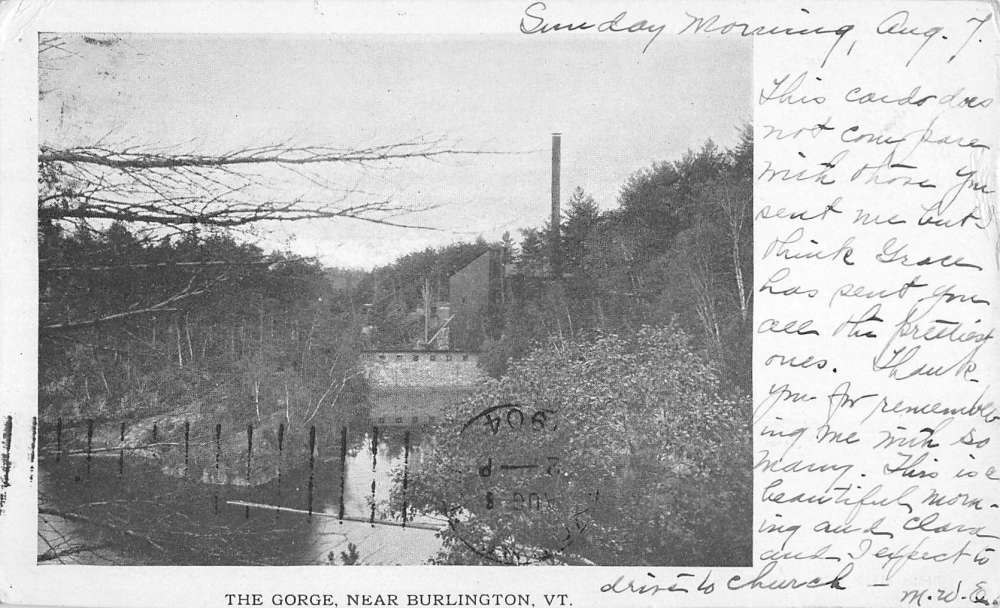 Sunday Morning, Aug. 7.
This cards does
not compare
with those you
sent me but I
think Grace
has sent you
all the prettiest
ones. Thank
you for remember
ing me with so
many. This is a
beautiful morn-
ing and Clara
and I expect to
drive to church –
M.W.E.
1904
THE GORGE, NEAR BURLINGTON, VT.